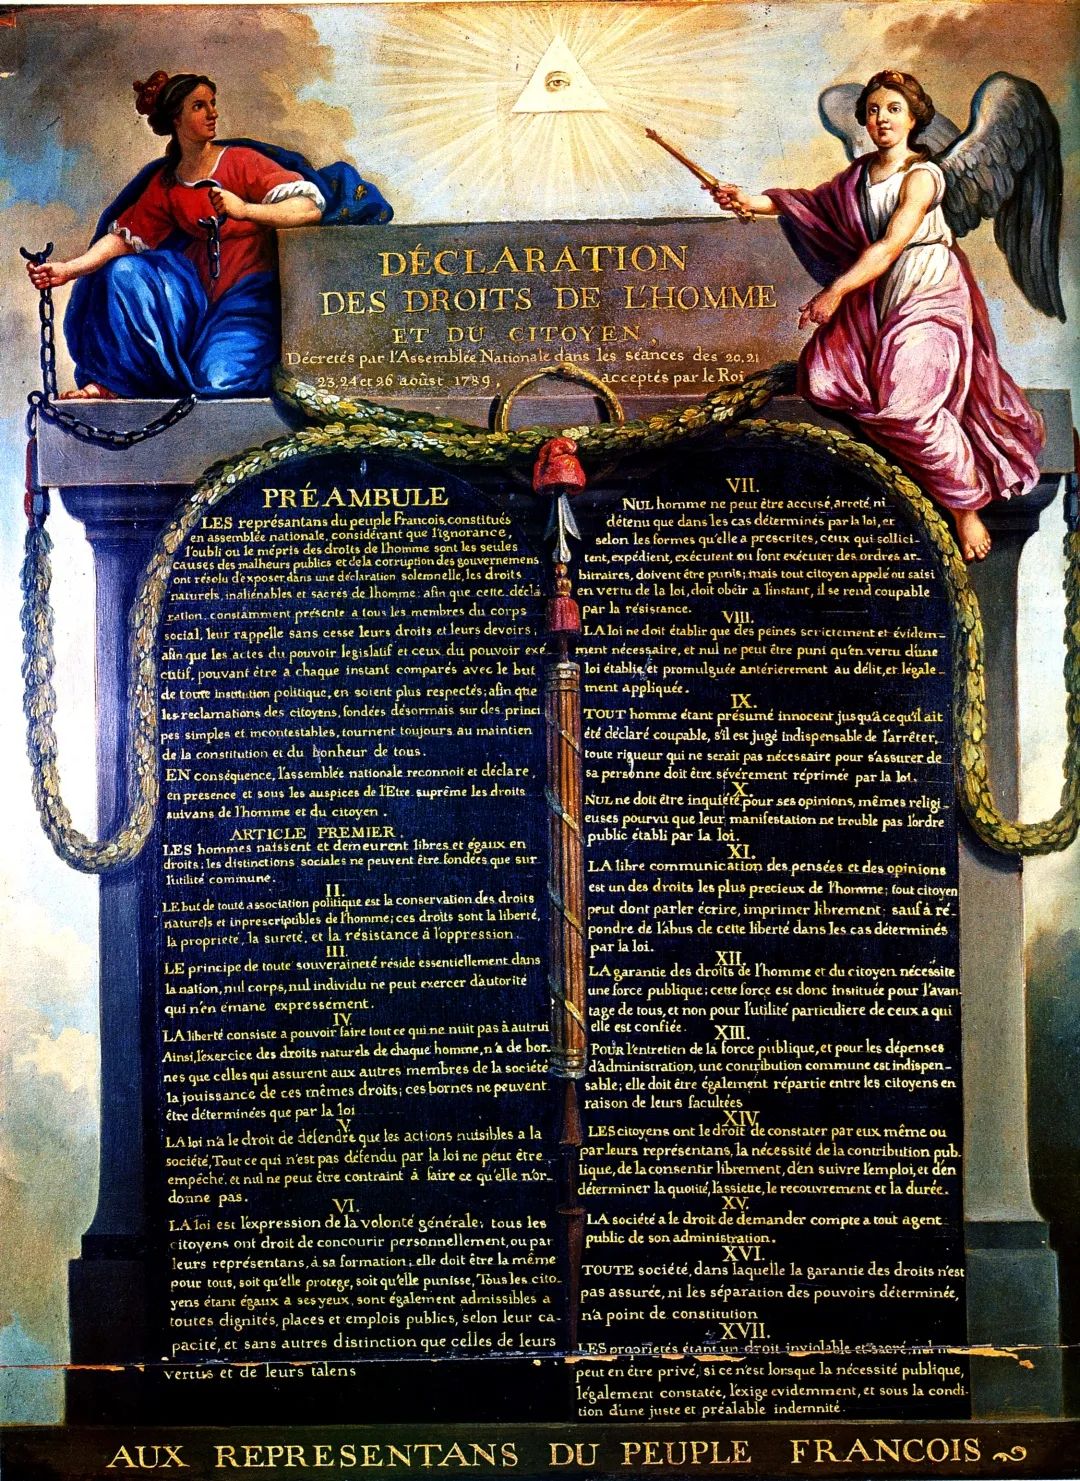 DÉCLARATION
DES DROITS DE L'HOMME
ET DU CITOYEN,
Décretés par l'Assemblée Nationale dans les séances des 20.21
23.24 et 26 aoûst 1789, acceptés par le Roi
PRÉAMBULE
LES représantans du peuple Francois, constitués
en assemblée nationale, considérant que l'ignorance,
l'oubli ou le mépris des droits de l'homme sont les seules
causes des malheurs publics et de la corruption des gouvernemens
ont résolu d'exposer, dans une déclaration solemnelle, les droits
naturels, inaliénables et sacrés de l'homme; afin que cette décla-
ration, constamment présente a tous les membres du corps
social, leur rappelle sans cesse leurs droits et leurs devoirs;
afin que les actes du pouvoir legislatif et ceux du pouvoir exé-
cutif, pouvant être a chaque instant comparés avec le but
de toute institution politique, en soient plus respectés; afin que
les reclamations des citoyens, fondées désormais sur des princi
pes simples et incontestables, tournent toujours au maintien
de la constitution et du bonheur de tous.
EN conséquence, l'assemblée nationale reconnoit et déclare,
en presence et sous les auspices de l'Etre suprême les droits
suivans de l'homme et du citoyen.
ARTICLE PREMIER.
LES hommes naissent et demeurent libres et égaux en
droits; les distinctions sociales ne peuvent être fondées que sur
l'utilité commune.
II.
LE but de toute association politique est la conservation des droits
naturels et inprescriptibles de l'homme; ces droits sont la liberté,
la propriete, la sureté, et la résistance à l'oppression.
III.
LE principe de toute souveraineté réside essentiellement dans
la nation, nul corps, nul individu ne peut exercer d'autorité
qui n'en émane expressement.
IV.
LA liberté consiste a pouvoir faire tout ce qui ne nuit pas à autrui
Ainsi, l'exercice des droits naturels de chaque homme, n'a de bor-
nes que celles qui assurent aux autres membres de la société
la jouissance de ces mêmes droits; ces bornes ne peuvent
être déterminées que par la loi
V.
LA loi n'a le droit de défendre que les actions nuisibles a la
société, Tout ce qui n'est pas défendu par la loi ne peut être
empêché, et nul ne peut être contraint à faire ce qu'elle n'or-
donne pas.
VI.
LA loi est l'expression de la volonté générale; tous les
citoyens ont droit de concourir personnellement, ou par
leurs représentans, à sa formation; elle doit être la même
pour tous, soit qu'elle protege, soit qu'elle punisse, Tous les cito-
yens étant égaux a ses yeux, sont également admissibles a
toutes dignités, places et emplois publics, selon leur ca-
pacité, et sans autres distinction que celles de leurs
vertus et de leurs talens
VII.
NUL homme ne peut être accusé, arreté, ni
détenu que dans les cas déterminés par la loi, et
selon les formes qu'elle a prescrites, ceux qui sollici-
tent, expédient, exécutent ou font exécuter des ordres ar-
bitraires, doivent être punis; mais tout citoyen appelé ou saisi
en vertu de la loi, doit obéir a l'instant, il se rend coupable
par la résistance.
VIII.
LA loi ne doit établir que des peines strictement et évidem-
ment nécessaire, et nul ne peut être puni qu'en vertu d'une
loi établie et promulguée antérierement au délit, et légale-
ment appliquée.
IX.
TOUT homme étant présumé innocent jusqu'a ce qu'il ait
été déclaré coupable, s'il est jugé indispensable de l'arrêter,
toute rigueur qui ne serait pas nécessaire pour s'assurer de
sa personne doit être sévérement réprimée par la loi.
X.
NUL ne doit être inquiété pour ses opinions, mêmes religi-
euses pourvu que leur manifestation ne trouble pas l'ordre
public établi par la loi.
XI.
LA libre communication des pensées et des opinions
est un des droits les plus precieux de l'homme; tout citoyen
peut dont parler écrire, imprimer librement; sauf à ré-
pondre de l'abus de cette liberté dans les cas déterminés
par la loi.
XII.
LA garantie des droits de l'homme et du citoyen nécessite
une force publique; cette force est donc instituée pour l'avan-
tage de tous, et non pour l'utilité particuliere de ceux a qui
elle est confiée.
XIII.
POUR l'entretien de la force publique, et pour les dépenses
d'administration, une contribution commune est indispen-
sable; elle doit être également répartie entre les citoyens en
raison de leurs facultées
XIV.
LES citoyens ont le droit de constater par eux même ou
par leurs représentans, la nécessité de la contribution pub-
lique, de la consentir librement, d'en suivre l'emploi, et d'en
déterminer la quotité, l'assiette, le recouvrement et la durée.
XV.
LA société a le droit de demander compte a tout agent
public de son administration.
XVI.
TOUTE société, dans laquelle la garantie des droits n'est
pas assurée, ni les séparation des pouvoirs déterminée,
n'a point de constitution
XVII.
LES proprietés étant un droit inviolable et sacré, nul ne
peut en être privé, si ce n'est lorsque la nécessité publique,
légalement constatée, l'exige evidemment, et sous la condi-
tion d'une juste et préalable indemnité.
AUX REPRESENTANS DU PEUPLE FRANCOIS